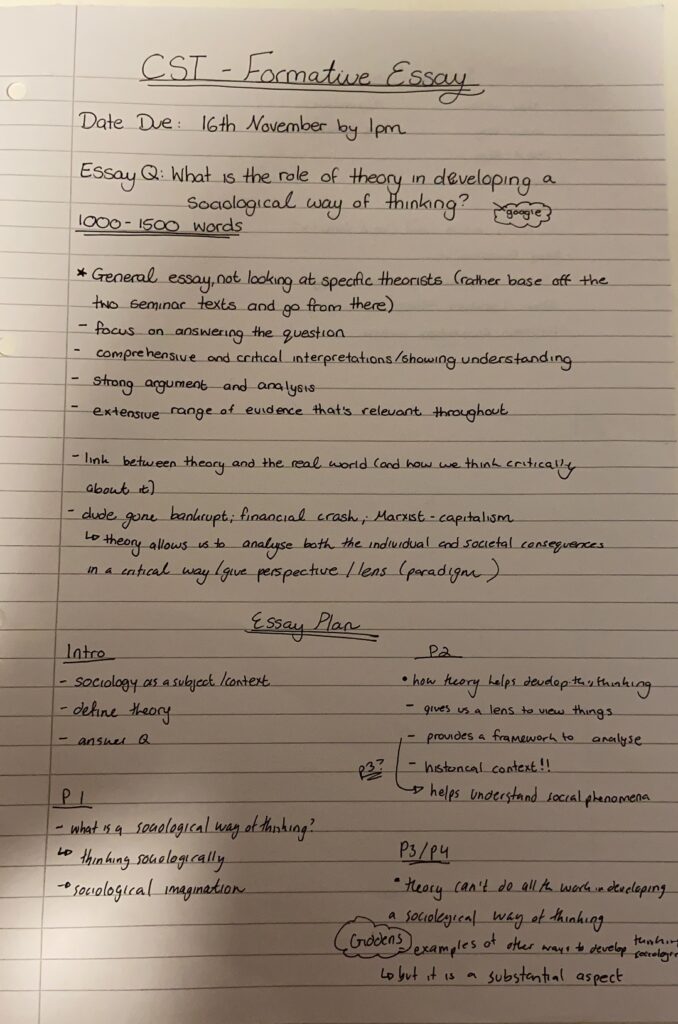 CST - Formative Essay
Date Due: 16th November by 1pm
Essay Q: What is the role of theory in developing a
sociological way of thinking?
google
1000-1500 words
* General essay, not looking at specific theorists (rather base off the
two seminar texts and go from there)
- focus on answering the question
- comprehensive and critical interpretations/showing understanding
- strong argument and analysis
- extensive range of evidence that's relevant throughout
- link between theory and the real world (and how we think critically
about it)
- dude gone bankrupt; financial crash; Marxist-capitalism
↳ theory allows us to analyse both the individual and societal consequences
in a critical way/give perspective/lens (paradigm)
Essay Plan
Intro
- sociology as a subject/context
- define theory
- answer Q
P1
- what is a sociological way of thinking?
↳ thinking sociologically
→ sociological imagination
P2
• how theory helps develop this thinking
- gives us a lens to view things
- provides a framework to analyse
P3?
- historical context!!
→ helps understand social phenomena
P3/P4
• theory can't do all the work in developing
a sociological way of thinking
Giddens
- examples of other ways to develop thinking
↳ but it is a substantial aspect